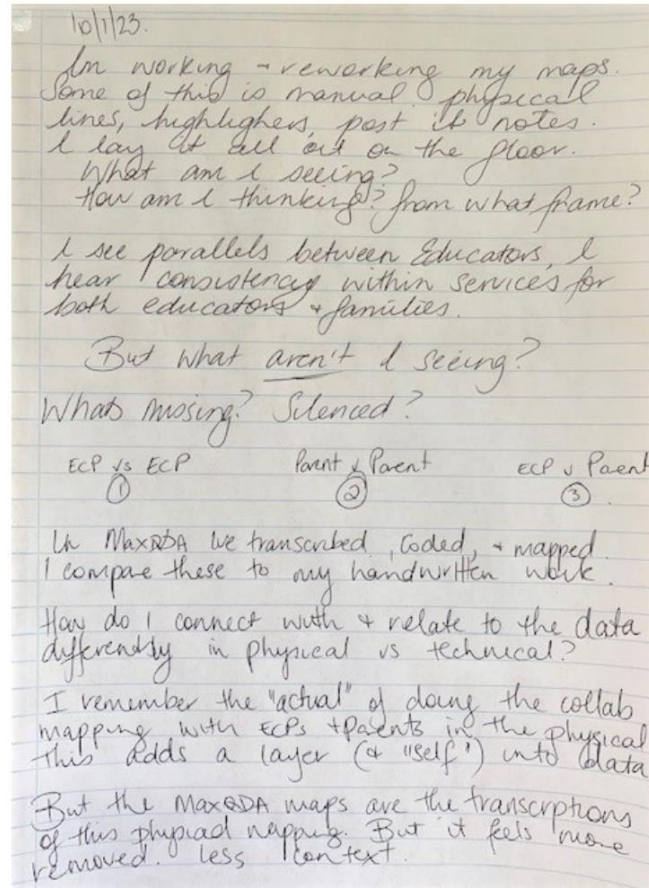 10/1/23.
Im working + reworking my maps.
Some of this is manual. physical
lines, highlighers, post it notes.
I lay it all out on the floor.
What am I seeing?
How am I thinking? from what frame?
I see parallels between Educators, I
hear consistency within services for
both educators + families.
But what aren't I seeing?
Whats missing? Silenced?
ECP vs ECP Parent v Parent ECP v Parent
① ② ③
In MaxQDA we transcribed, coded, + mapped.
I compare these to my handwritten work.
How do I connect with + relate to the data
differently in physical vs technical?
I remember the "actual" of doing the collab
mapping with ECPs + Parents in the physical
this adds a layer (+ "self") into data
But the MaxQDA maps are the transcrptions
of this physical mapping. But it feels more
removed. less context.